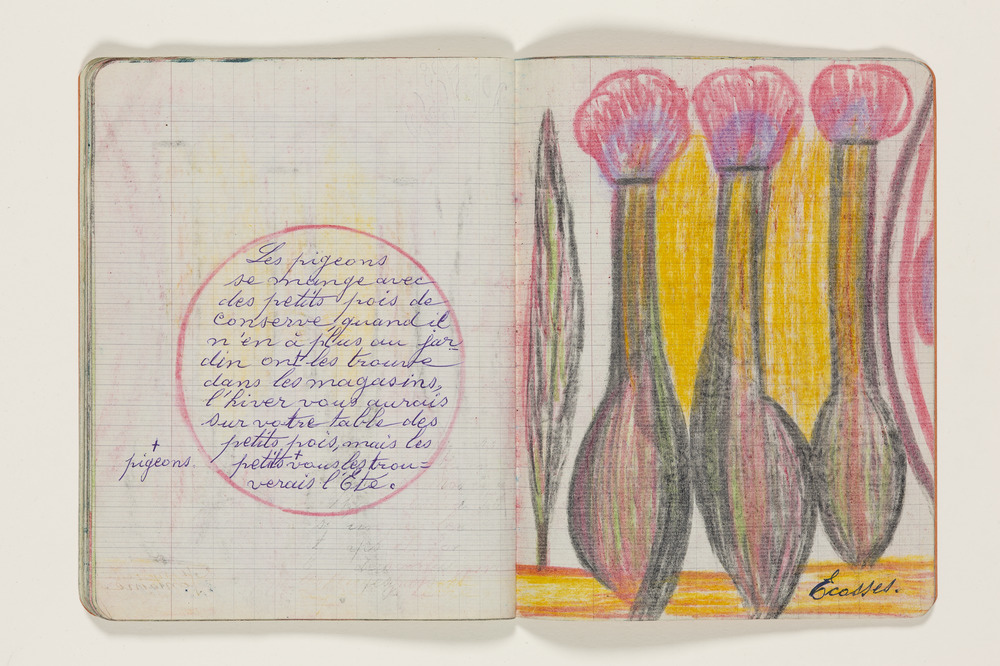 Les pigeons
se mange avec
des petits pois de
conserve, quand il
n'en à plus au jar=
din ont les trouve
dans les magasins,
l'hiver vous aurais
sur votre table des
petits pois, mais les
petits + vous les trou=
verais l'Eté.
+
pigeons.
Écosses.